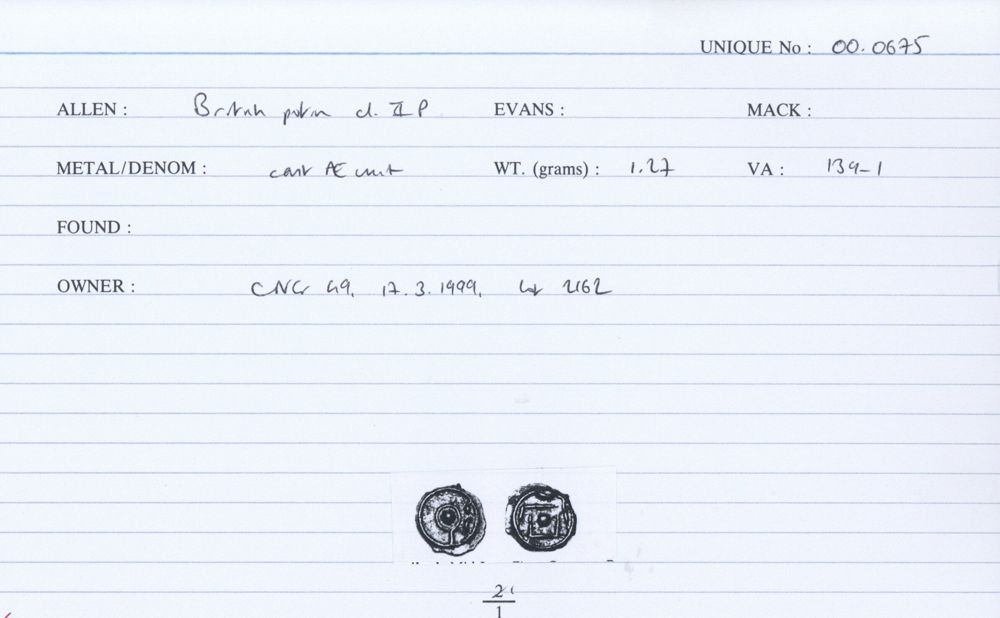 UNIQUE No : 00.0675
ALLEN : British potin cl. II P EVANS : MACK :
METAL/DENOM : cast Æ unit WT. (grams) : 1.27 VA : 139-1
FOUND :
OWNER : CNG 49, 17.3.1999, lot 2162
2
1